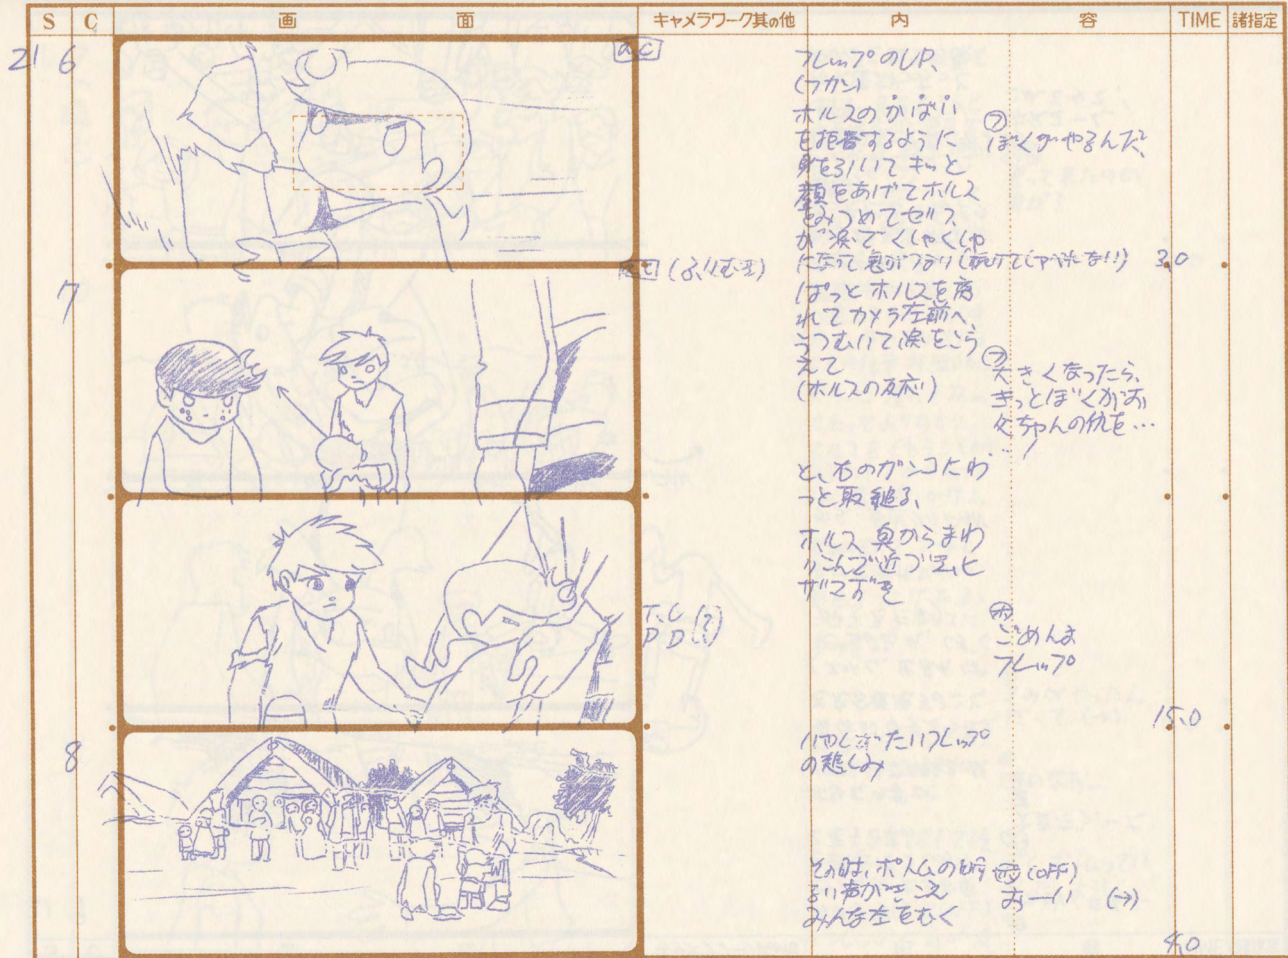 S C 画 面 キャメラワーク其の他 内 容 TIME 諸指定
21 6
フレップのUP、
(フカン)
ホルスのかばい
を拒否するように
身を引いてキッと
顔をあげてホルス
をみつめてセリフ、
が涙でくしゃくしゃ
フ
ぼくがやるんだ、
3.0
7
ぱっとホルスを离
れてカメラ左前へ
うつむいて涙をこら
えて
(ホルスの反応)
フ
大きくなったら、
きっとぼくがお
父ちゃんの仇を…
と、右のガンコたわ
っと取縋る、
ホルス、奥からまわ
りこんで近づき、ヒ
ザマヅき
T.U
P D (?)
ホ
ごめんよ
フレップ
15.0
8
いやしがたいフレップ
の悲しみ
その時、ポトムの
い声がきこえ
みんな左をむく
(OFF)
おーい (→)
4.0